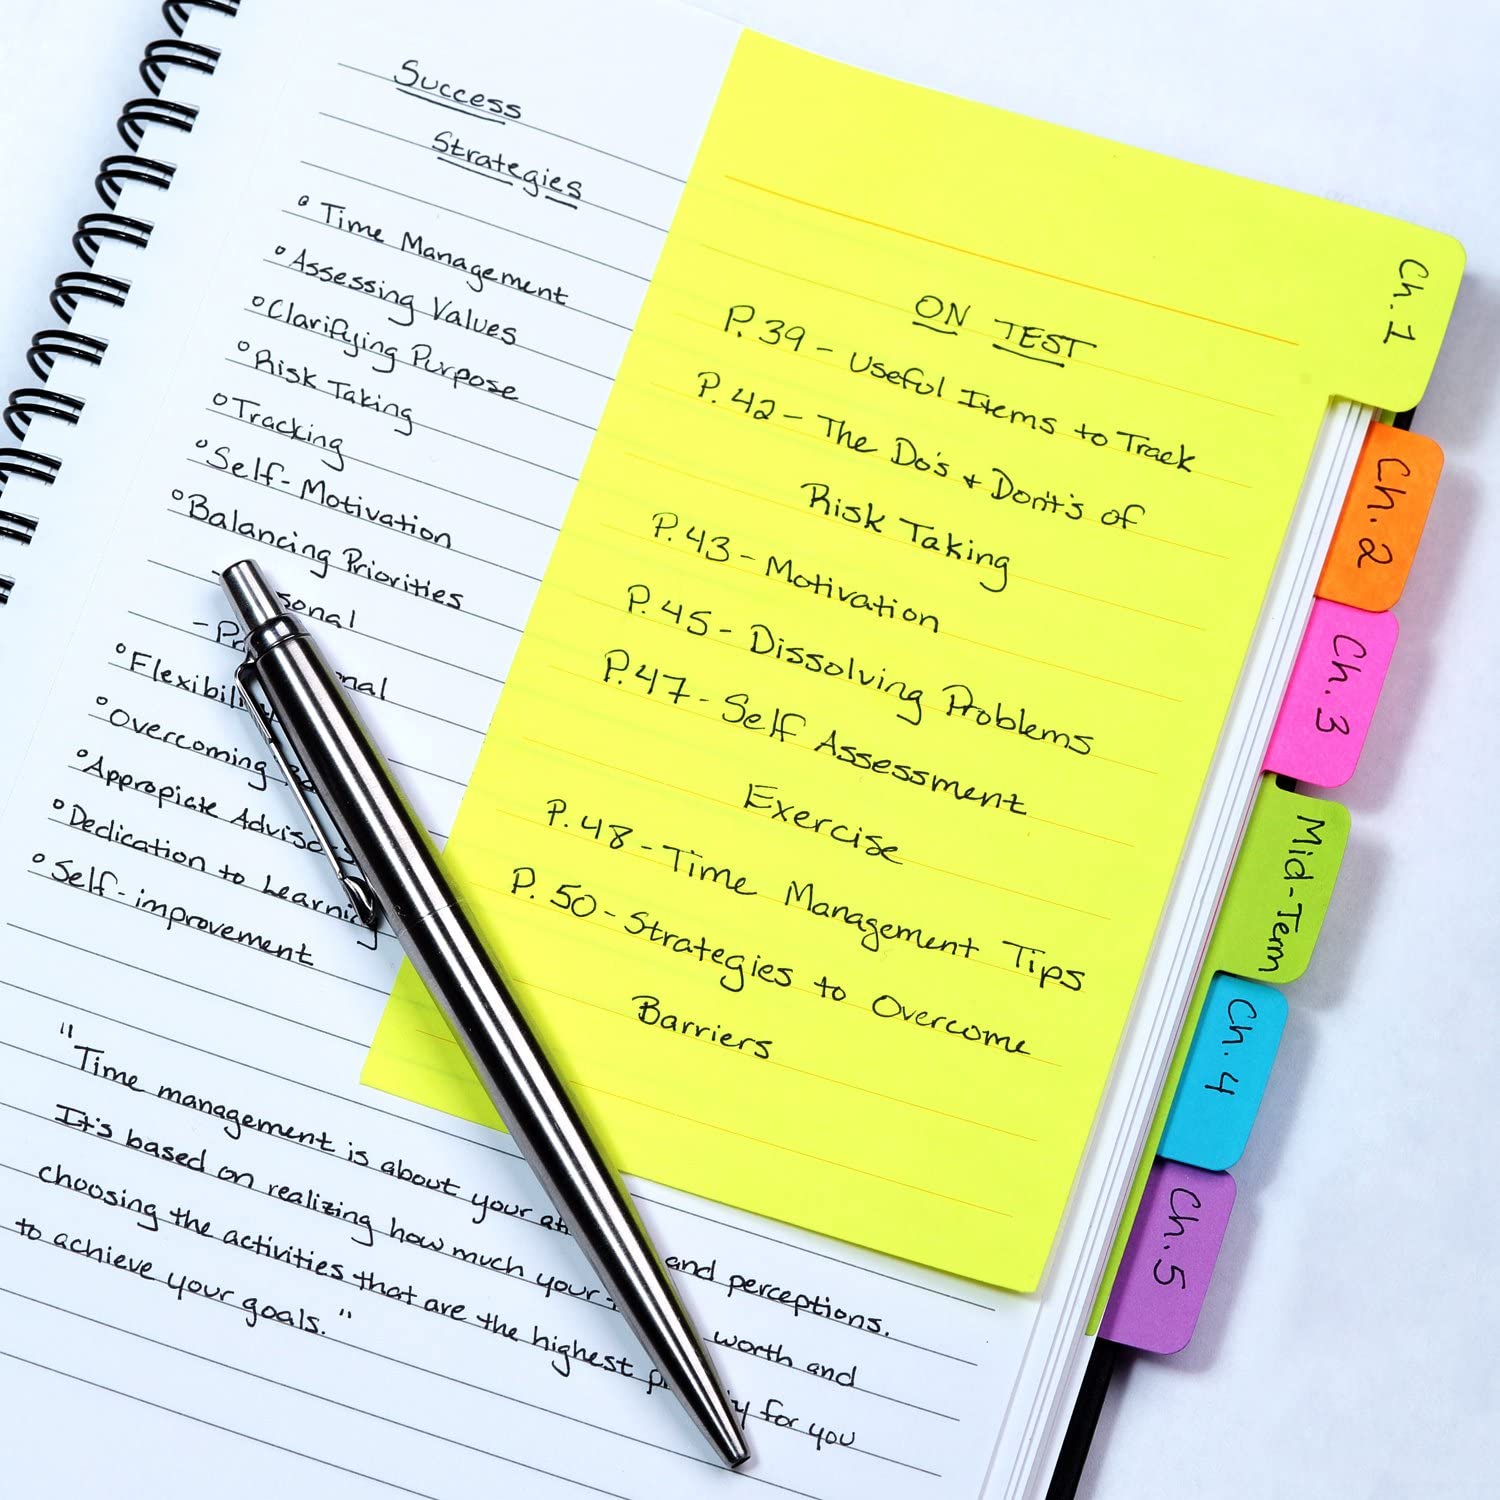 Success
Strategies
° Time Management
° Assessing Values
° Clarifying Purpose
° Risk Taking
° Tracking
° Self-Motivation
° Balancing Priorities
- sonal
- P nal
° Flexibili
° Overcoming
° Appropiate Adviso
° Dedication to Learning
° Self-improvement
"Time management is about your and perceptions.
It's based on realizing how much your worth and
choosing the activities that are the highest for you
to achieve your goals."
ON TEST
P. 39 - Useful Items to Track
P. 42 - The Do's + Dont's of
Risk Taking
P. 43 - Motivation
P. 45 - Dissolving Problems
P. 47 - Self Assessment
Exercise
P. 48 - Time Management Tips
P. 50 - Strategies to Overcome
Barriers
Ch. 1
Ch. 2
Ch. 3
Mid-Term
Ch. 4
Ch. 5